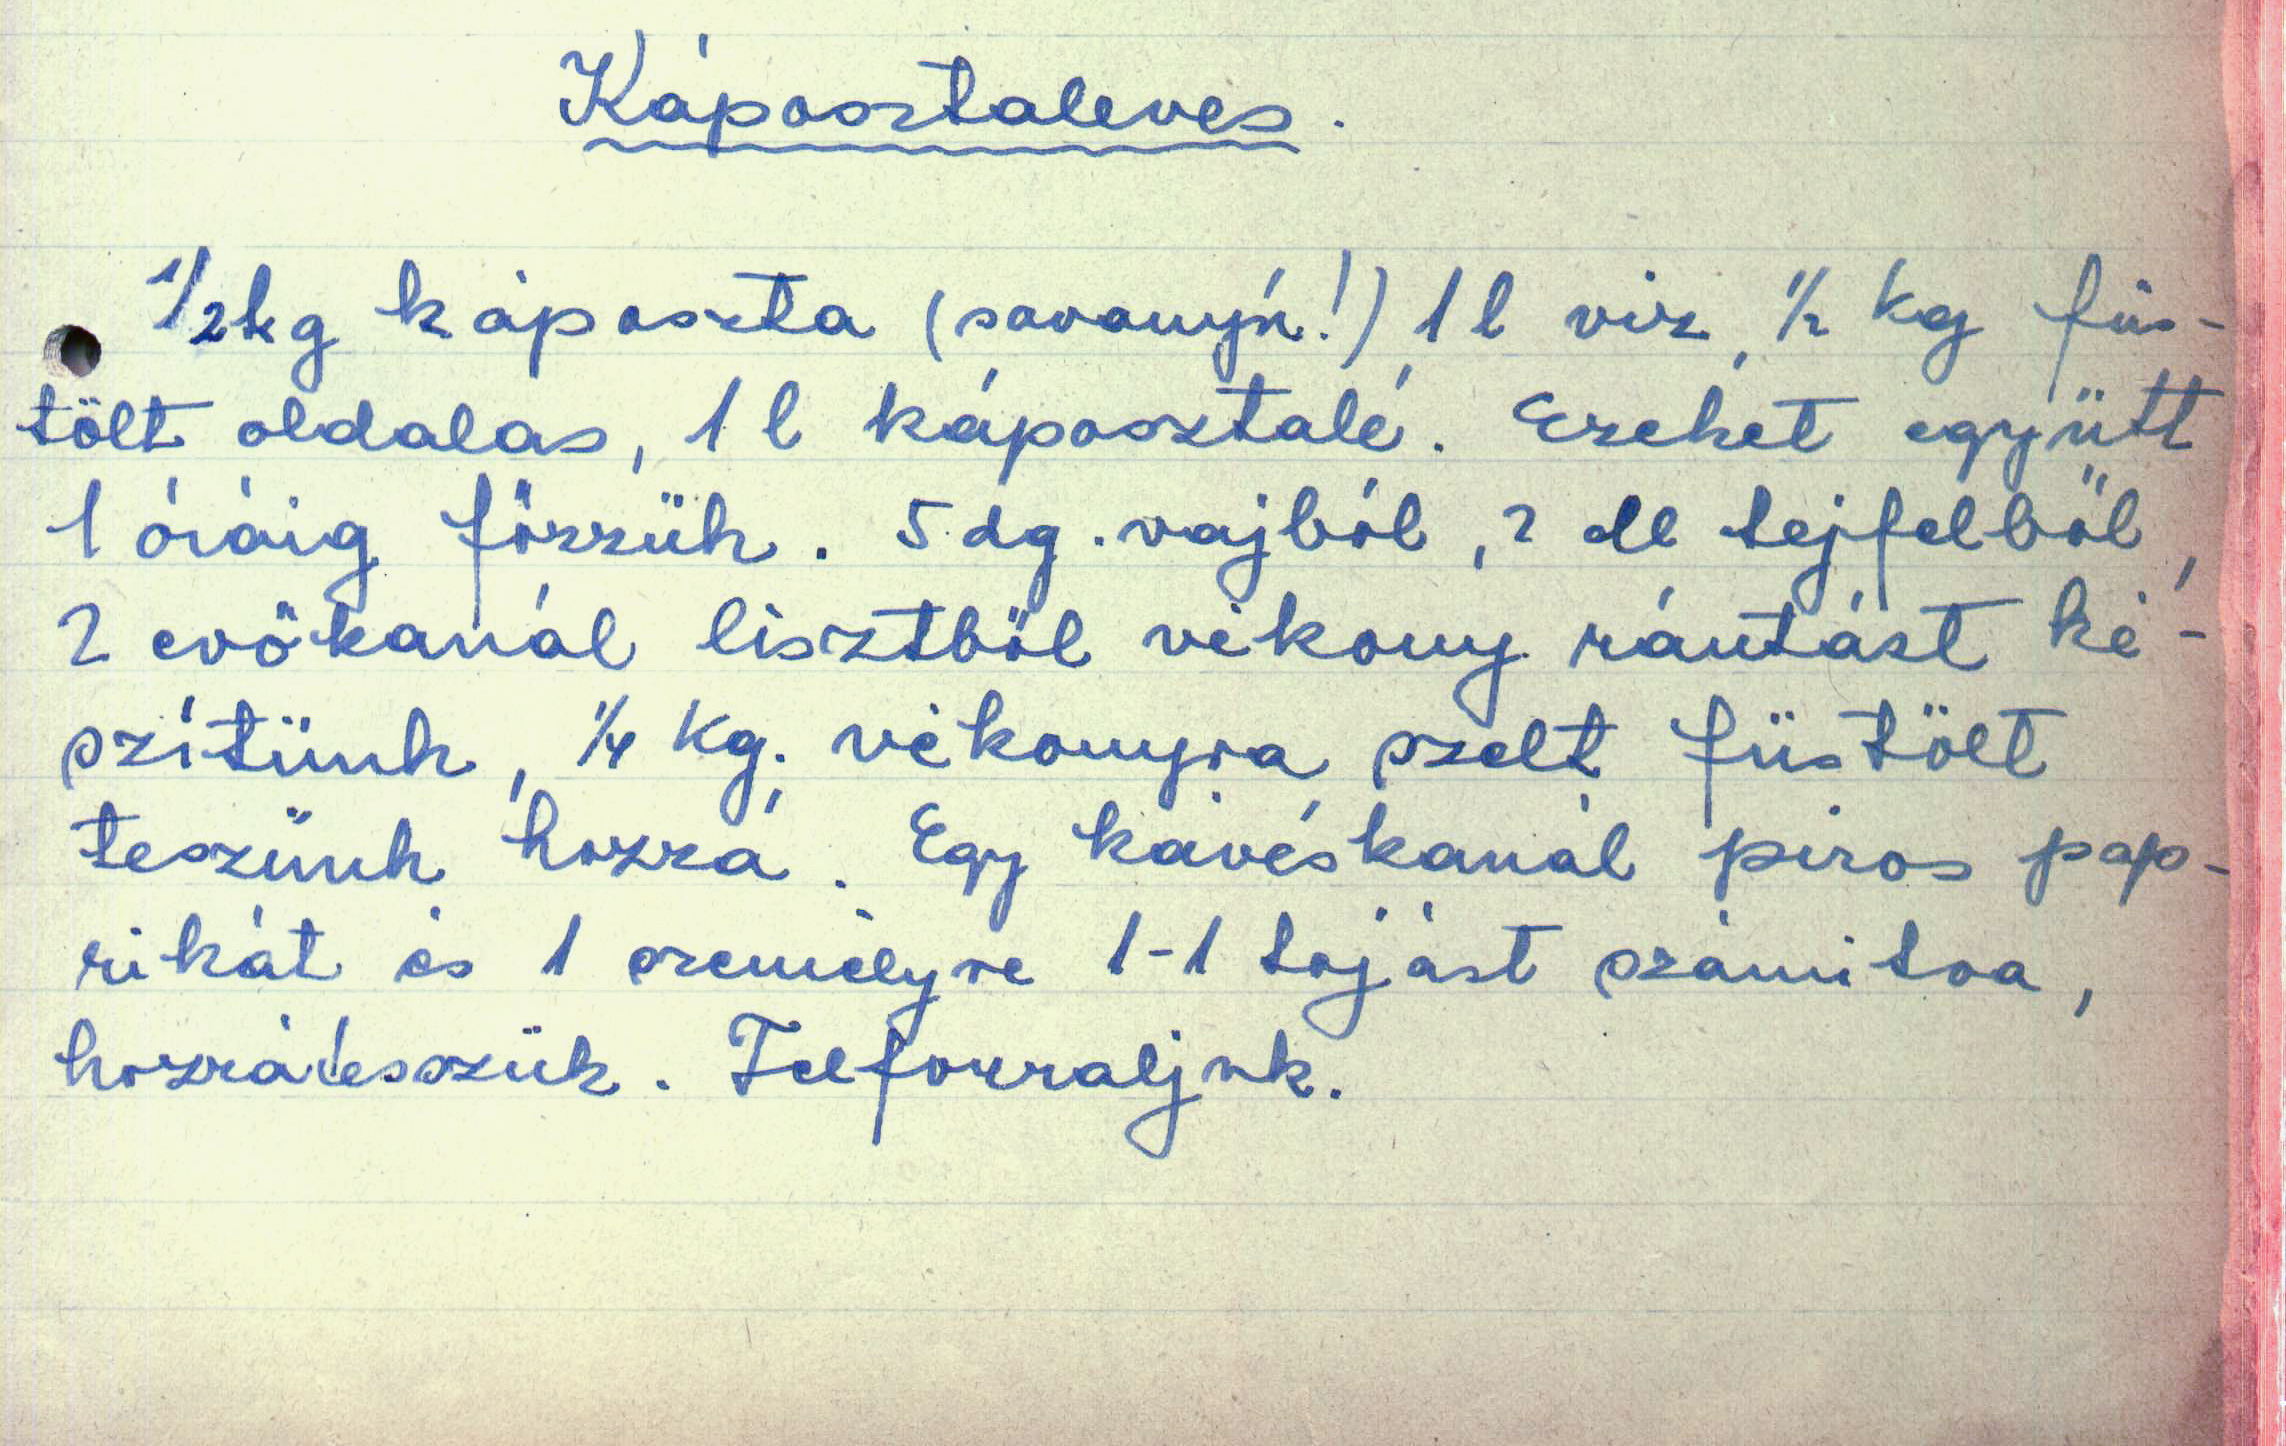 Káposztaleves.
1/2 kg káposzta (savanyú!) 1 l viz, 1/2 kg füs-
tölt oldalas, 1 l káposztalé. Ezeket együtt
1 óráig főzzük. 5 dg. vajból, 2 dl tejfelből,
2 evőkanál lisztből vékony rántást ké-
szítünk, 1/4 kg. vékonyra szelt füstölt
teszünk hozzá. Egy kávéskanál piros pap-
rikát és 1 személyre 1-1 tojást számitva,
hozzátesszük. Felforraljuk.